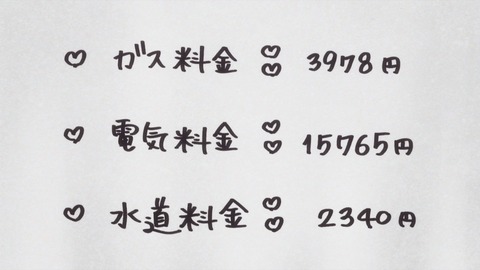 ♡ ガス料金 : 3978円
♡ 電気料金 : 15765円
♡ 水道料金 : 2340円